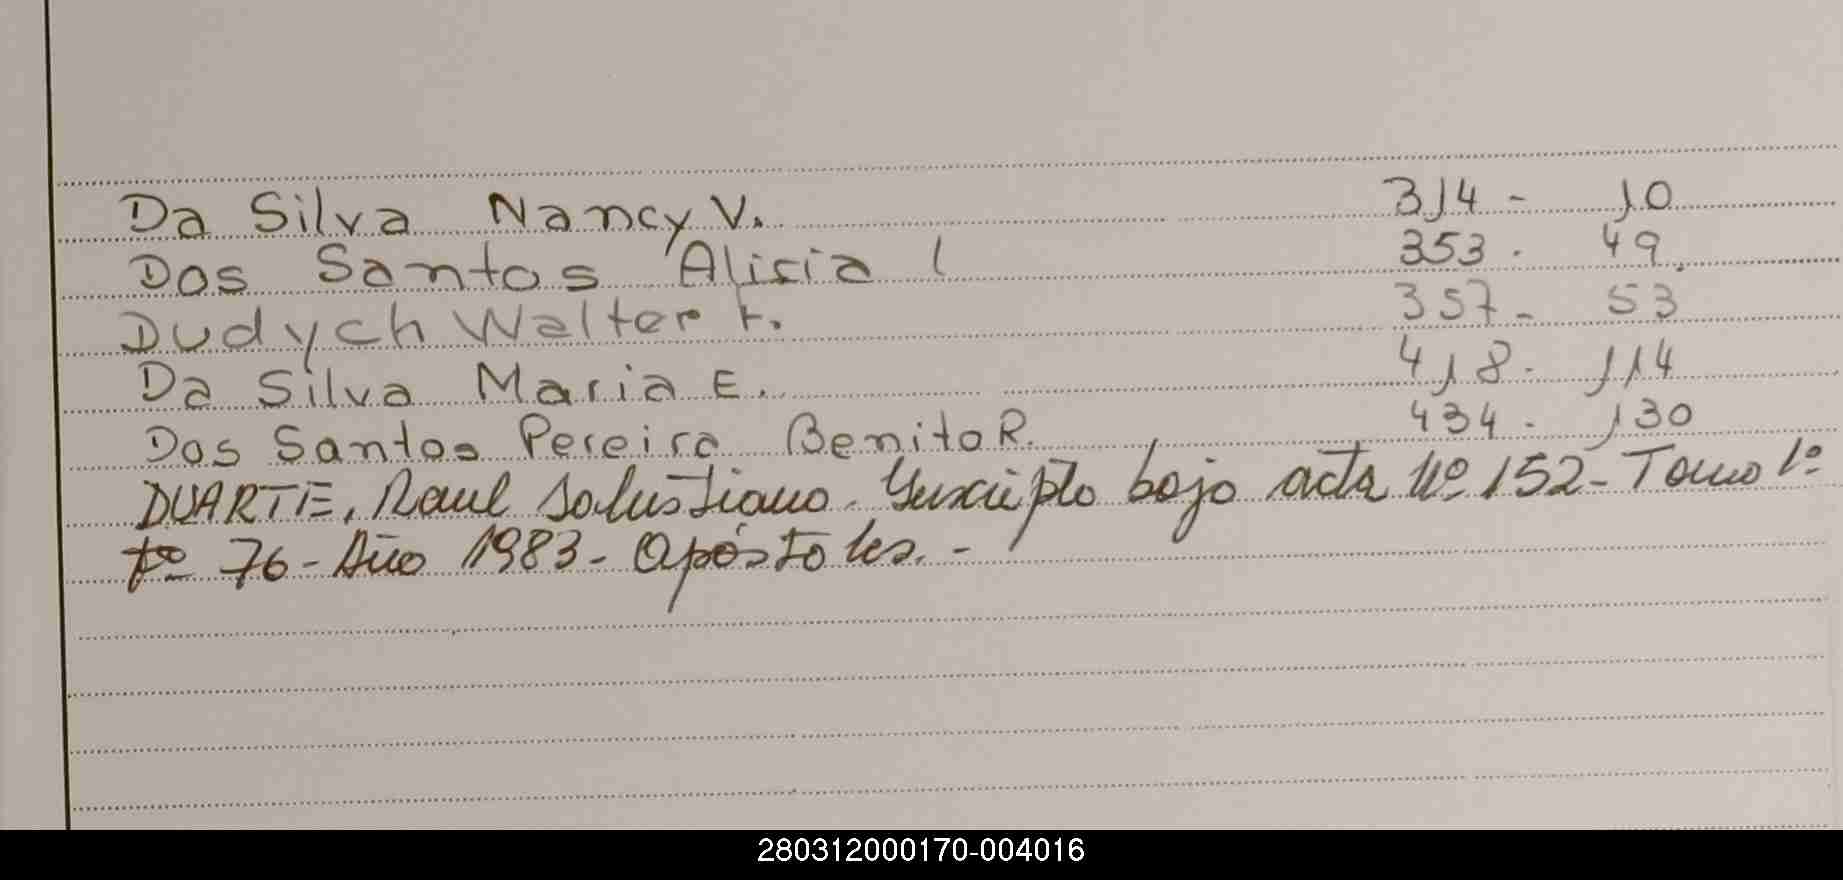 Da Silva Nancy V. 314 - 10
Dos Santos Alicia I 353 - 49.
Dudych Walter F. 357 - 53
Da Silva Maria E. 418 - 114
Dos Santos Pereira Benito R. 434 - 130
DUARTE, Raul Salustiano. Inscripto bajo acta Nº 152 - Tomo 1º
fº 76 - Año 1983 - Apóstoles. -
280312000170-004016